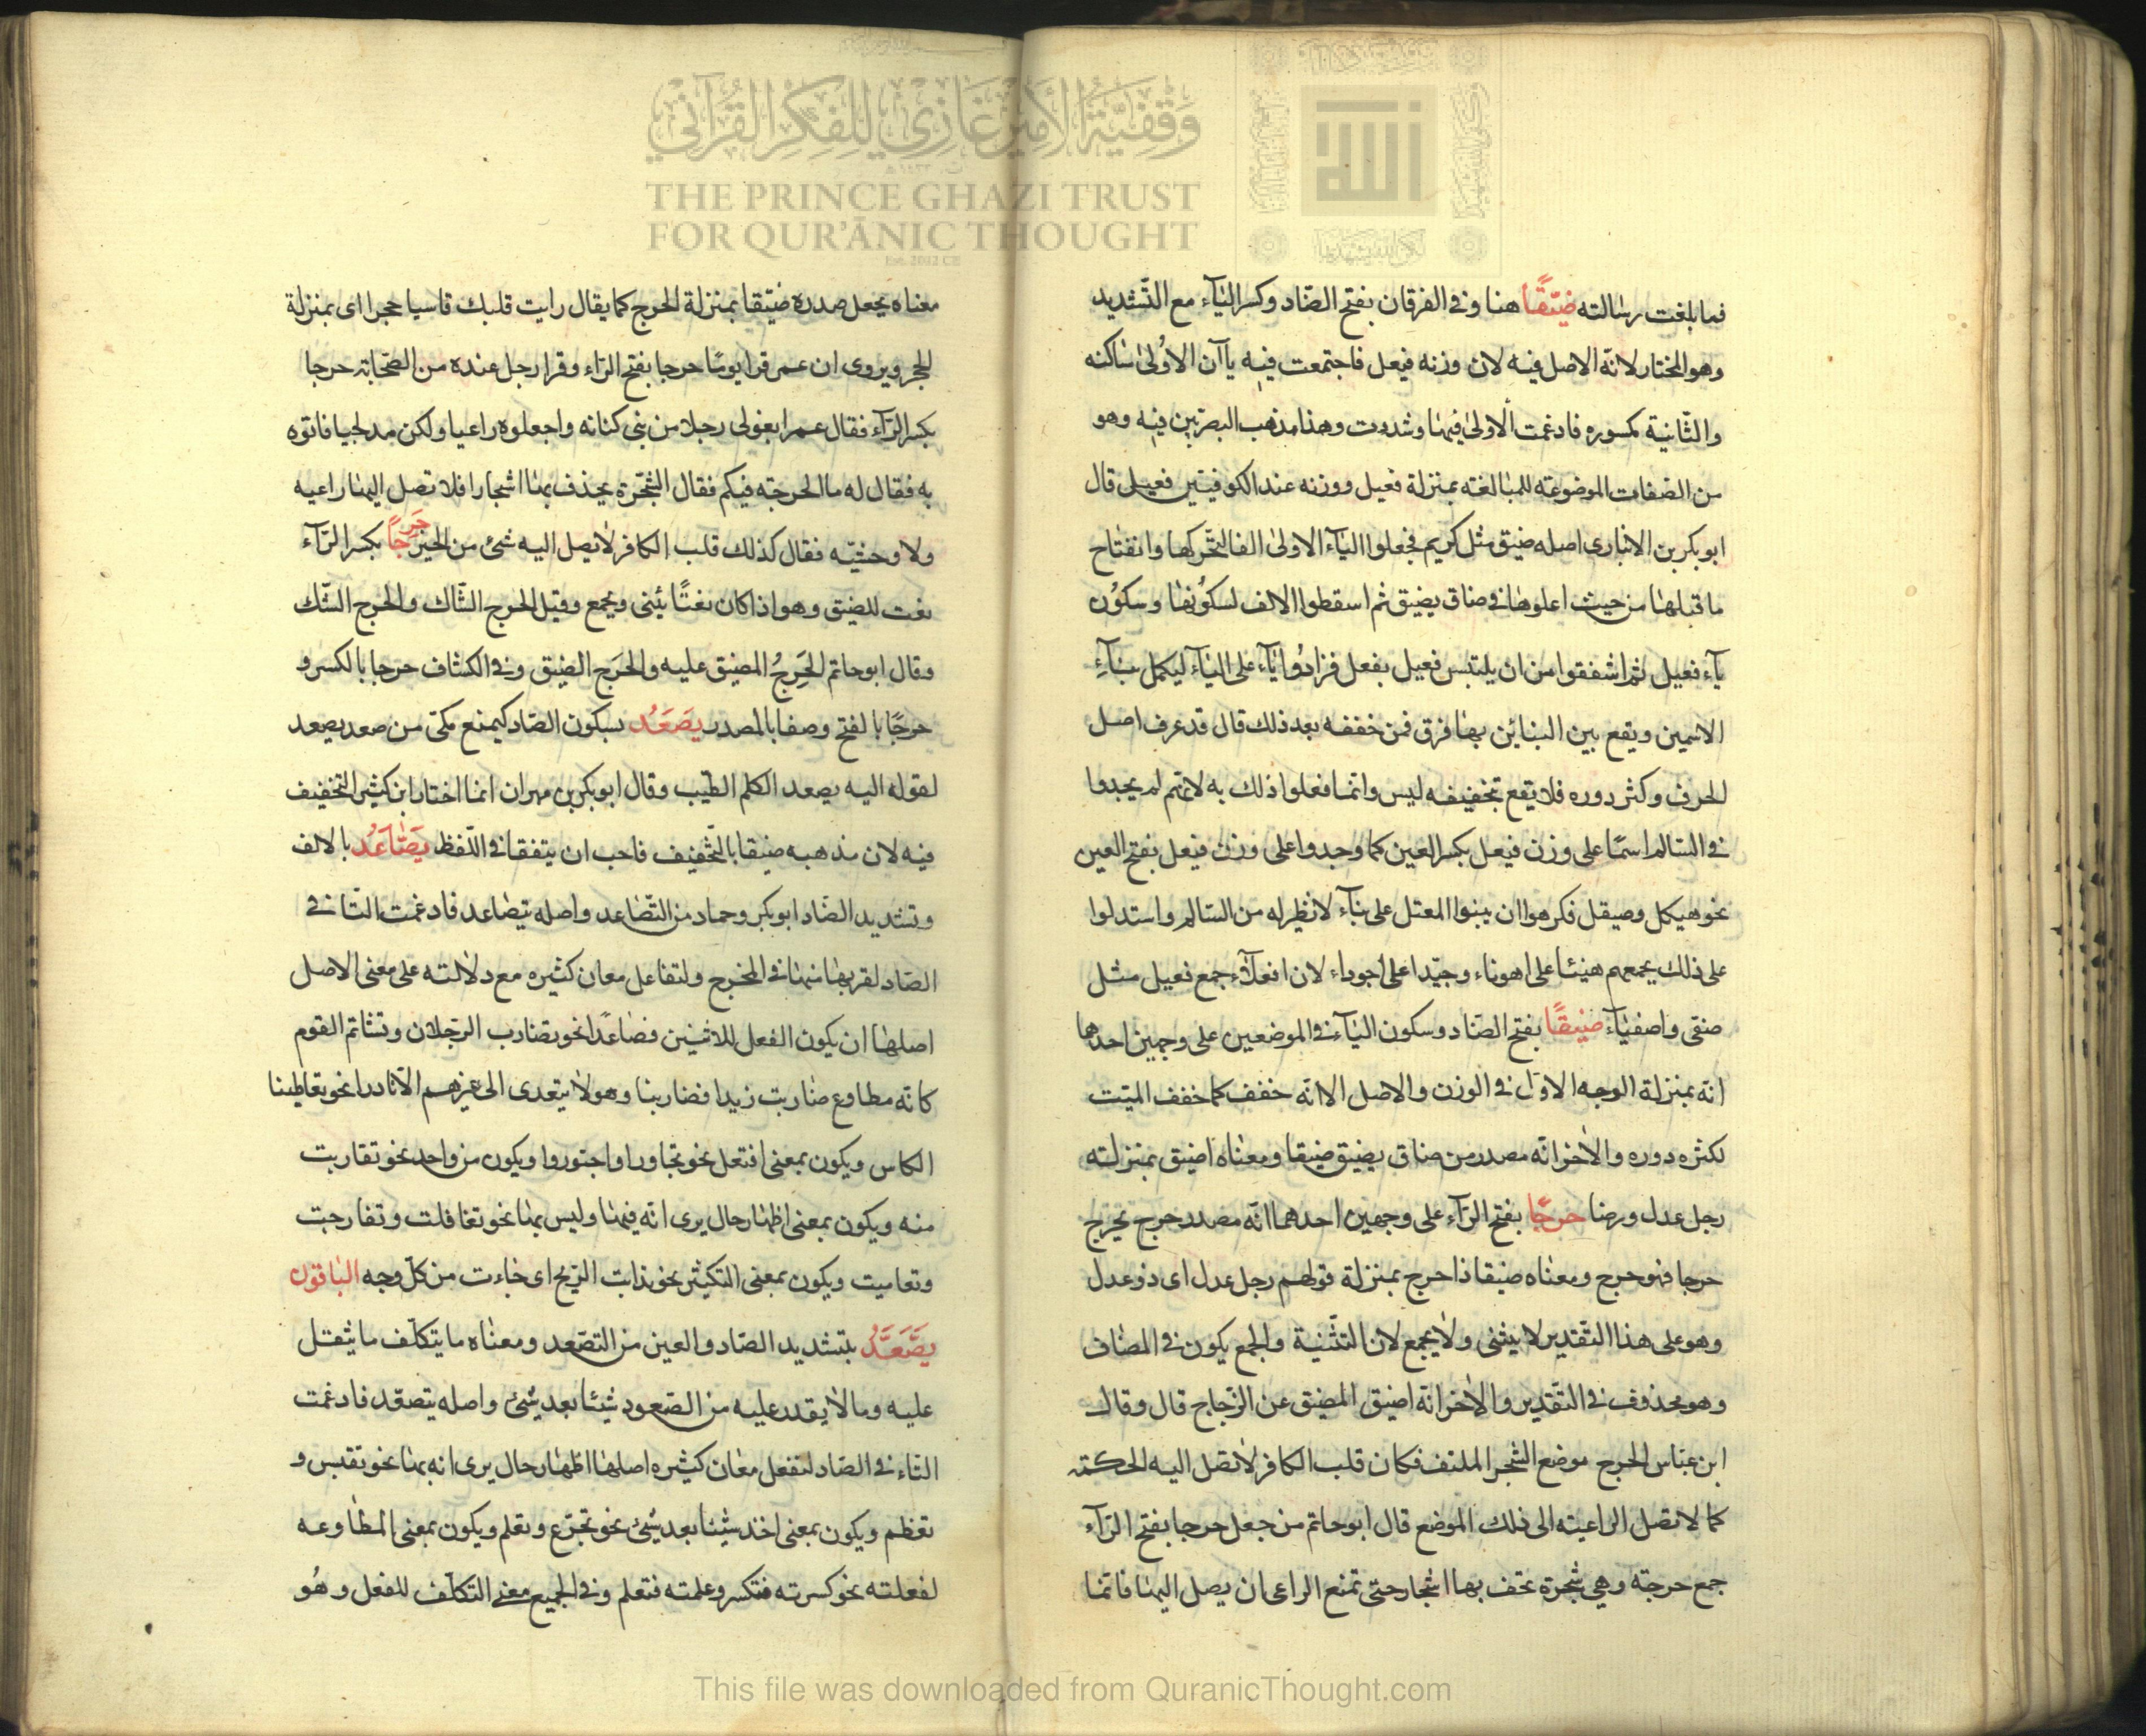 وقفية الأمير غازي للفكر القرآني
THE PRINCE GHAZI TRUST
FOR QUR'ĀNIC THOUGHT
Est. 2012 CE
الله
فما بلغت رسالته ضيّقًا هنا وفي الفرقان بفتح الضّاد وكسر اليآء مع التّشديد
وهو المختار لانّه الاصل فيه لان وزنه فيعل فاجتمعت فيه ياآن الاُولىٰ ساكنه
والثّانية مكسوره فادغمت الاولىٰ فيها وشددت وهذا مذهب البصريين فيه وهو
من الصفات الموضوعته للمبالغته بمنزلة فعيل ووزنه عند الكوفيّين فعيل قال
ابو بكر بن الانباري اصله ضييق مثل كريم فجعلوا اليآء الاولىٰ الفا لتحّركها وانفتاح
ما قبلها من حيث اعلوها في ضاق يضيق ثم اسقطوا الالف لسكُونها وسكوُن
يآء فعيل ثم اشفقوا من ان يلتبس فعيل بفعل فزادُوا يآء على اليآء ليكمل بنآءِ
الاسمين ويقع بين البنائين بها فرق فمن خففه بعد ذلك قال قد عرف اصل
الحرف وكثر دوره فلا يقع بتخفيفه لبس وانّما فعلوا ذلك به لانّهم لم يجدوا
في السّالم اسمًا على وزن فيعل بكسر العين كما وجدوا على وزن فيعل بفتح العين
نحو هيكل وصيقل فكرهوا ان يبنوا المعتل على بنآء لا نظير له من السّالم واستدلوا
على ذلك بجمعهم هيّنا على اهوناء وجيّدا على اجوداء لان افعلآء جمع فعيل مثل
صفى واصفيآء ضيْقًا بفتح الضّاد وسكون اليآء في الموضعين على وجهين احدهما
انّه بمنزلة الوجه الاوّل في الوزن والاصل الا انّه خفف كما خفف الميّت
لكثره دوره والاٰخر انّه مصدر من ضاق يضيق ضيقا ومعناه اضيق بمنزلته
رجل عدل ورضا حرجًا بفتح الرّآء على وجهين احدهما انّه مصدر حرج يحرج
حرجا فهو حرج ومعناه ضيقا ذا حرج بمنزلة قولهم رجل عدل اى ذو عدل
وهو على هذا التقدير لا يثنى ولا يجمع لان التّثنية والجمع يكون في المضاف
وهو محذوف في التّقدير والاٰخر انّه اضيق المضيق عن الزّجاج قال وقال
ابن عبّاس الحرج موضع الشجر الملتف فكان قلب الكافر لا تصل اليه الحكمته
كما لا تصل الراعيته الى ذلك الموضع قال ابو حاتم من جعل حرجا بفتح الرّآء
جمع حرجته وهي شجرة تحف بها اشجار حتى تمنع الراعى ان يصل اليها فانّما
معناه يجعل صدره ضيّقا بمنزلة الحرج كما يقال رايت قلبك قاسيا حجرا اى بمنزلة
الحجر ويروى ان عمر قرا يومًا حرجا بفتح الرّاء وقرا رجل عنده من الصّحابته حرجا
بكسر الرّآء فقال عمر ابغولى رجلا من بنى كنانه واجعلوه راعيا ولكن مدلجيا فاتوه
به فقال له ما الحرجته فيكم فقال الشّجرة يحذف بها اشجارا فلا تصل اليها راعيه
ولا وحشيّه فقال كذلك قلب الكافر لا يصل اليه شئ من الخير حَرِجًا بكسر الرّآء
نعت للضيق وهو اذا كان نعتًا يثنى ويجمع وقيل الحرج الشّاك والحرج الشّك
وقال ابو حاتم الحَرِجُ المضيق عليه والحَرَج الضيق وفي الكشاف حرجا بالكسر و
حرجًا بالفتح وصفا بالمصدر يصْعَدُ بسكون الصّاد كيمنع مكىّ من صعد يصعد
لقوله اليه يصعد الكلم الطّيب وقال ابو بكر بن مهران انما اختار ابن كثير التخفيف
فيه لان مذهبه ضيقا بالتّخفيف فاحب ان يتفقا في اللّفظ يَصّاعَدُ بالالف
وتشديد الصّاد ابو بكر وحماد من التّصاعد واصله يتصاعد فادغمت التّا في
الصّاد لقربها منها في المخرج ولتفاعل معان كثيره مع دلالته على معنى الاصل
اصلها ان يكون الفعل للاثنين فصاعدًا نحو تضارب الرّجلان وتشاتم القوم
كانّه مطاوع ضاربت زيدا فضاربنا وهو لا يتعدى الى غيرهم الّا نادرا نحو تعاطينا
الكاس ويكون بمعنى افتعل نحو تجاورا واجتوروا ويكون من واحد نحو تقاربت
منه ويكون بمعنى اظهار حال يرى انّه فيها وليس بها نحو تغافلت وتفارحت
وتعاميت ويكون بمعنى التكثير نحو تذابت الرّيح اى جاءت من كلّ وجه الباقون
يَصَّعَّدُ بتشديد الصّاد والعين من التصّعد ومعناه ما يتكلّف ما يثقل
عليه وما لا يقدر عليه من الصّعود شيئا بعد شئ واصله يتصعّد فادغمت
التّاء في الصّاد لتفعل معان كثيره اصلها اظهار حال يرى انه بها نحو تقيس و
تعظم ويكون بمعنى اخذ شيئا بعد شئ نحو تجرّع وتعلم ويكون بمعنى المطاوعه
لفعلته نحو كسرته فتكسر وعلمته فتعلم وفي الجميع معنى التكلّف للفعل وهُو
This file was downloaded from QuranicThought.com